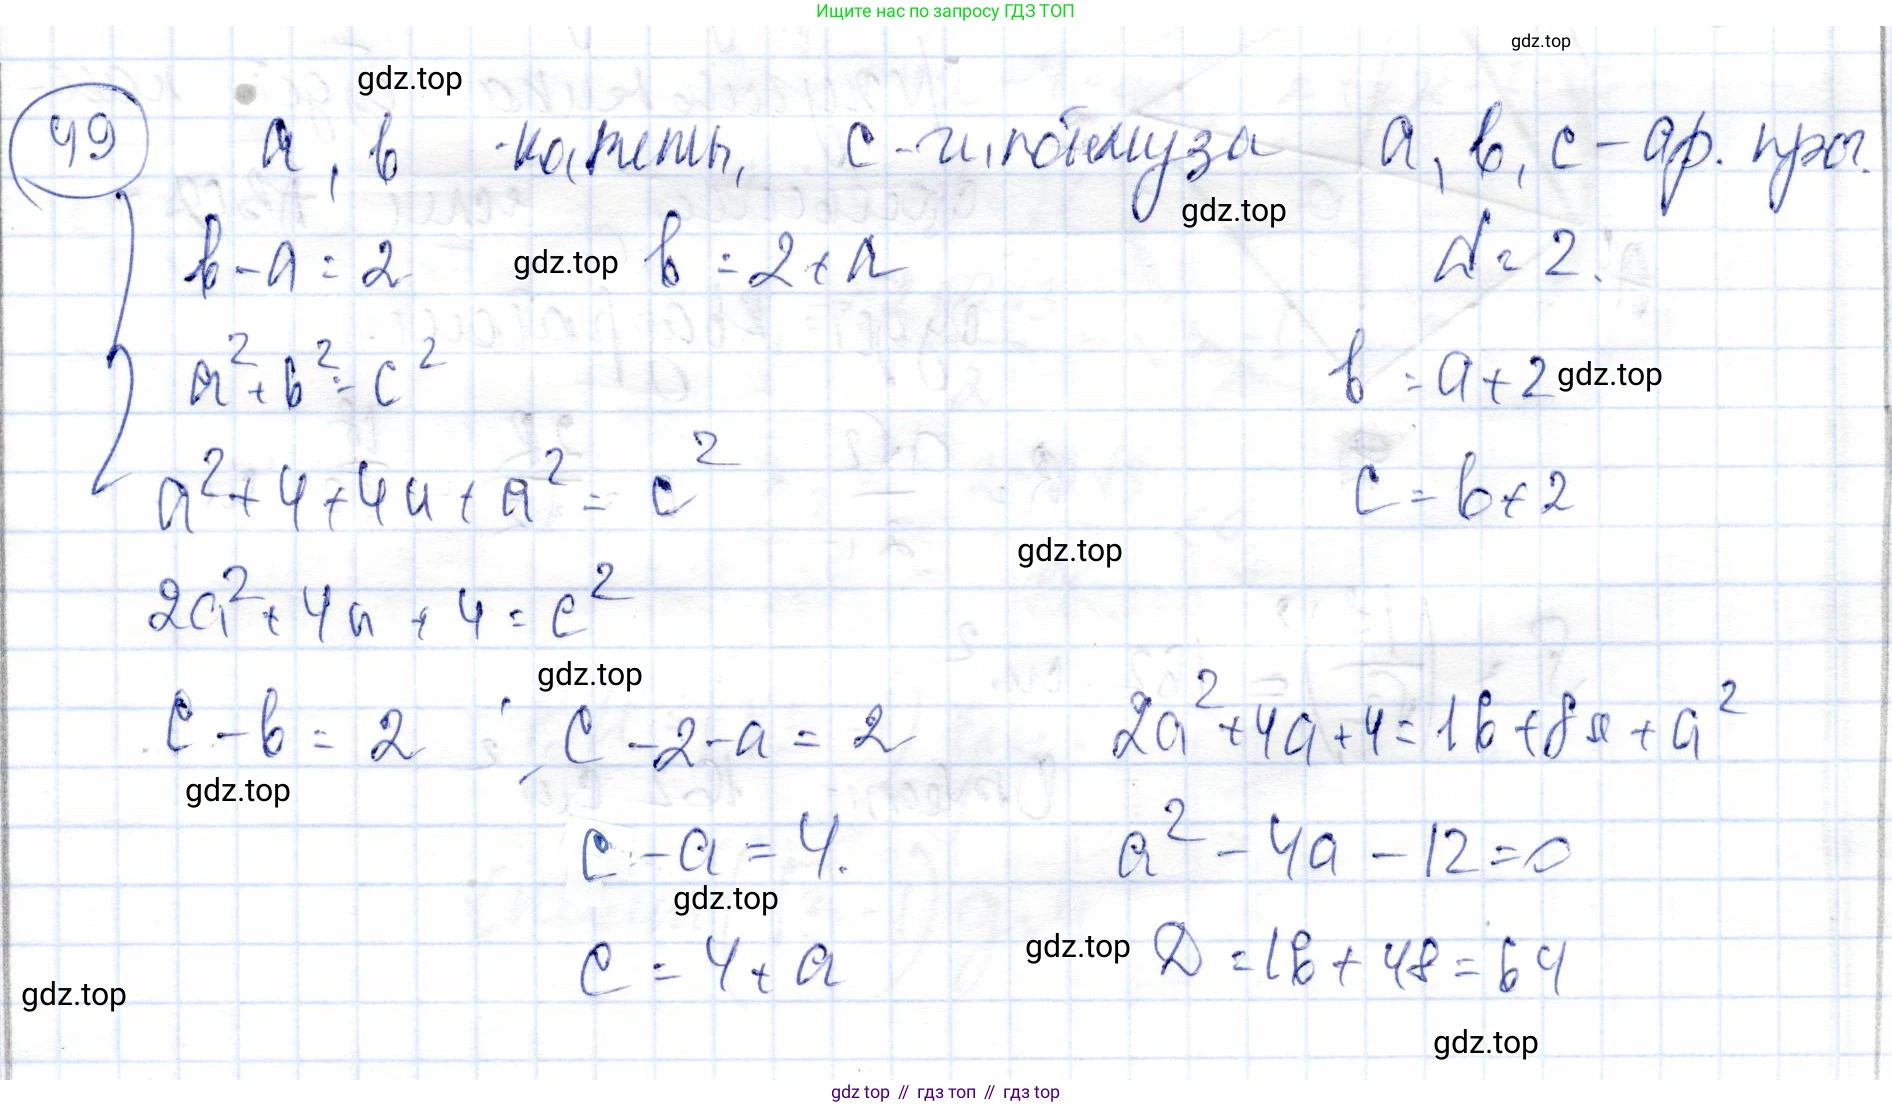 Ищите нас по запросу ГДЗ ТОП
gdz.top
gdz.top
49 a, b - катеты, c - гипотенуза a, b, c - ар. прог.
gdz.top
b - a = 2 gdz.top b = 2 + a d = 2.
a² + b² = c² b = a + 2 gdz.top
a² + 4 + 4a + a² = c² c = b + 2
gdz.top
2a² + 4a + 4 = c²
gdz.top
c - b = 2 ; c - 2 - a = 2 2a² + 4a + 4 = 16 + 8a + a²
gdz.top
c - a = 4. a² - 4a - 12 = 0
gdz.top
c = 4 + a gdz.top D = 16 + 48 = 64
gdz.top
gdz.top
gdz top // гдз топ // гдз top